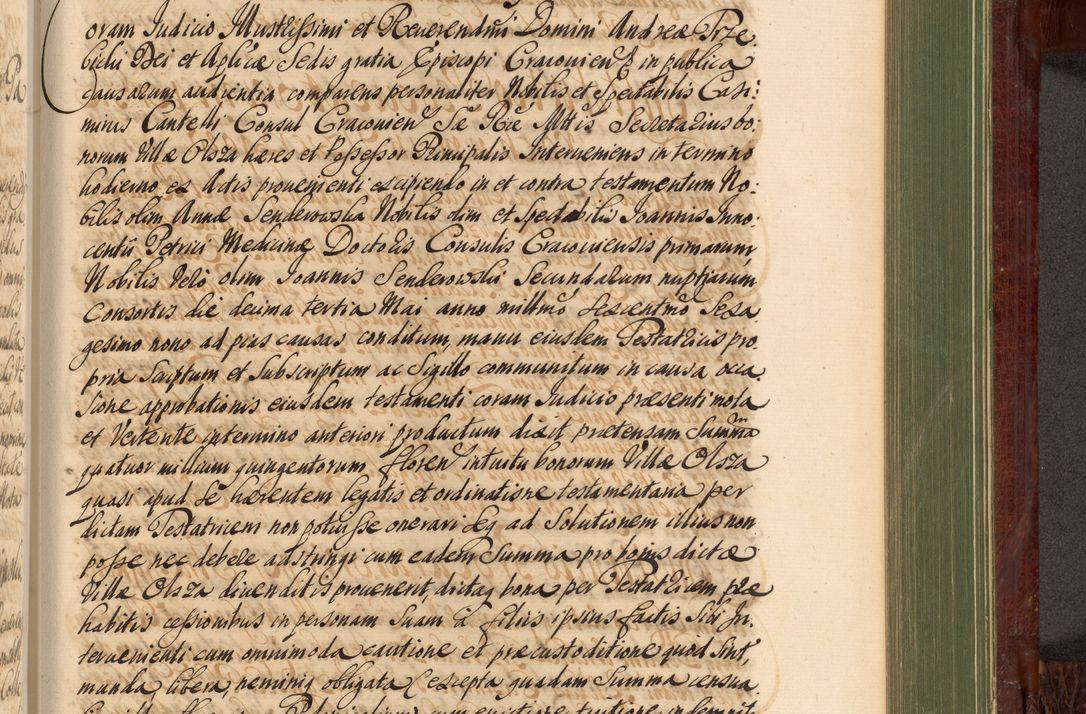 oram Iudicio Illustrissimi et Reverendmi Domini Andreæ Trze
bicki Dei et Aplicæ Sedis gratia Episcopi Cracovien in publica
causarum audientia comparens personaliter Nobilis et Spectabilis Casi:
mirus Cantelli Consul Cracovien Sæ Ræ Mttis Secretarius bo:
norum Villæ Olsza hæres et Possessor Principalis Interveniens in termino
hodierno ex Actis provenienti excipiendo in et contra testamentum No:
bilis olim Annæ Senderowska Nobilis olim et Spectabilis Joannis Inno
centii Petrici Medicinæ Doctoris Consulis Cracoviensis primarum
Nobilis Vero olim Joannis Senderowski Secundarum nuptiarum
Consortis die decima tertia Mai anno millmo sexcentmo Sexa
gesimo nono ad pias causas conditum, manu eiusdem Testatricis pro
pria Scriptum et Subscriptum ac Sigillo communitum in causa occa
sione approbationis eiusdem testamenti coram Iudicio præsenti mota
et Vertente in termino anteriori productum dixit prætensam Summam
quatuor millium quingentorum floren intuitu bonorum Villæ Olsza
quasi apud se hærentem legatis et ordinatione testamentaria per
dictam Testatricem non potuisse onerari seq ad Solutionem illius non
posse nec debere adstringi cum eadem Summa pro bonis dictæ
Villæ Olsza divenditis provenerit, dictaq bona per Testatricem præ
habitis cessionibus in personam Suam à filiis ipsius factis Sibi In
tervenienti cum omnimoda cautione et præcustoditione quod Sint,
munda, libera, nemini obligata (excepta quadam Summa censua